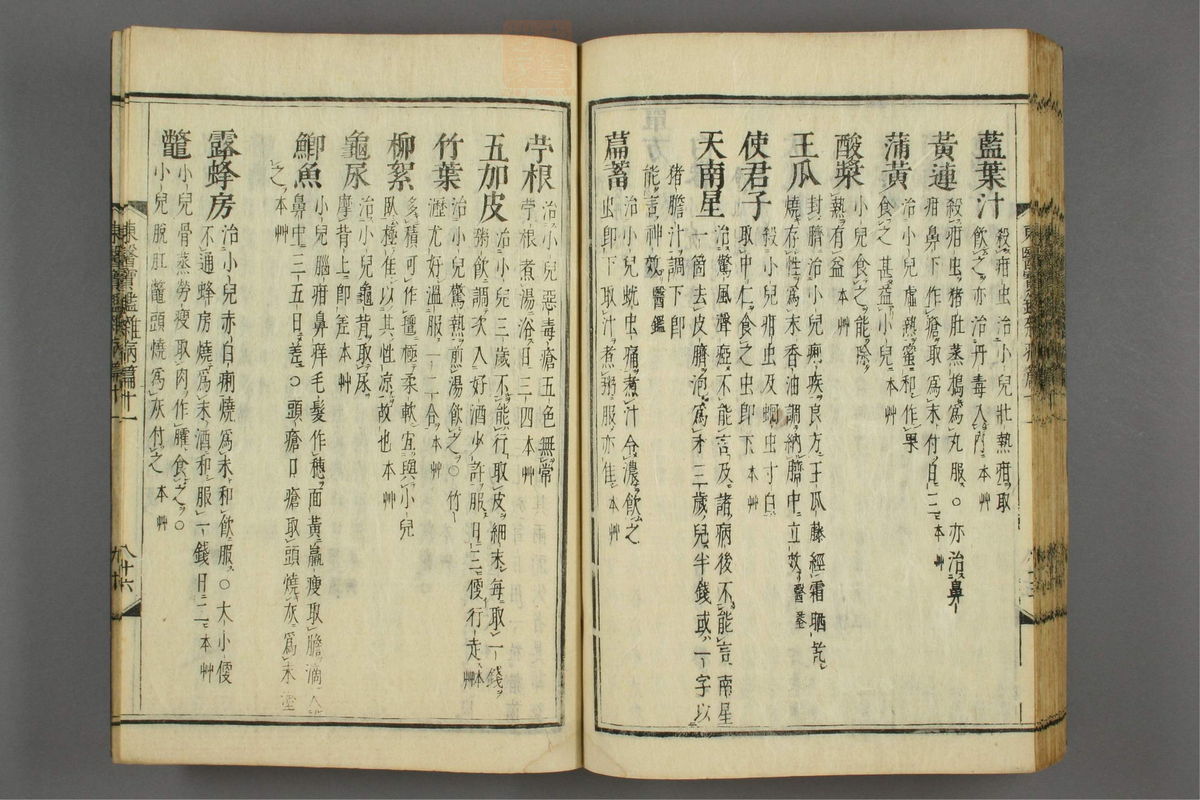 藍葉汁 殺疳虫治小兒壯熱疳取
飮之亦治丹毒入內 本艸
黃連 殺疳虫猪肚蒸搗爲丸服○亦治鼻
疳鼻下作瘡取爲末付日二三 本艸
蒲黃 治小兒虛熱蜜和作果
食之甚益小兒 本艸
酸漿 小兒食之能除
熱有益 本艸
王瓜 封臍治小兒痢疾良方王瓜藤經霜晒乾
燒存性爲末香油調納臍中立效 醫鑑
使君子 殺小兒疳虫及蚘虫寸白
取中仁食之虫卽下 本艸
天南星 治驚風聲瘂不能言及諸病後不能言南星
一箇去皮臍泡爲末三歲兒半錢或一字以
猪膽汁調下卽
能言神效 醫鑑
萹蓄 治小兒蚘虫痛煮汁令濃飮之
虫卽下取汁煮粥服亦佳 本艸
苧根 治小兒惡毒瘡五色無常
苧根煮湯浴日三四 本艸
五加皮 治小兒三歲不能行取皮細末每取一錢
粥飮調次入好酒少許服日三便行走 本艸
竹葉 治小兒驚熱煎湯飮之○竹
瀝尤好溫服一二合 本艸
柳絮 多積可作氊極柔軟宜與小兒
臥極佳以其性凉故也 本艸
龜尿 治小兒龜背取尿
摩背上卽差 本艸
鯽魚 小兒腦疳鼻痒毛髮作穗面黃羸瘦取膽滴入
鼻中三五日差○頭瘡口瘡取頭燒灰爲末
之 本艸
露蜂房 治小兒赤白痢燒爲末和飮服○大小便
不通蜂房燒爲末酒和服一錢日二 本艸
鼈 小兒骨蒸勞瘦取肉作臛食之○
小兒脫肛鼈頭燒爲灰付之 本艸
東醫寶鑑雜病篇十一
八十六